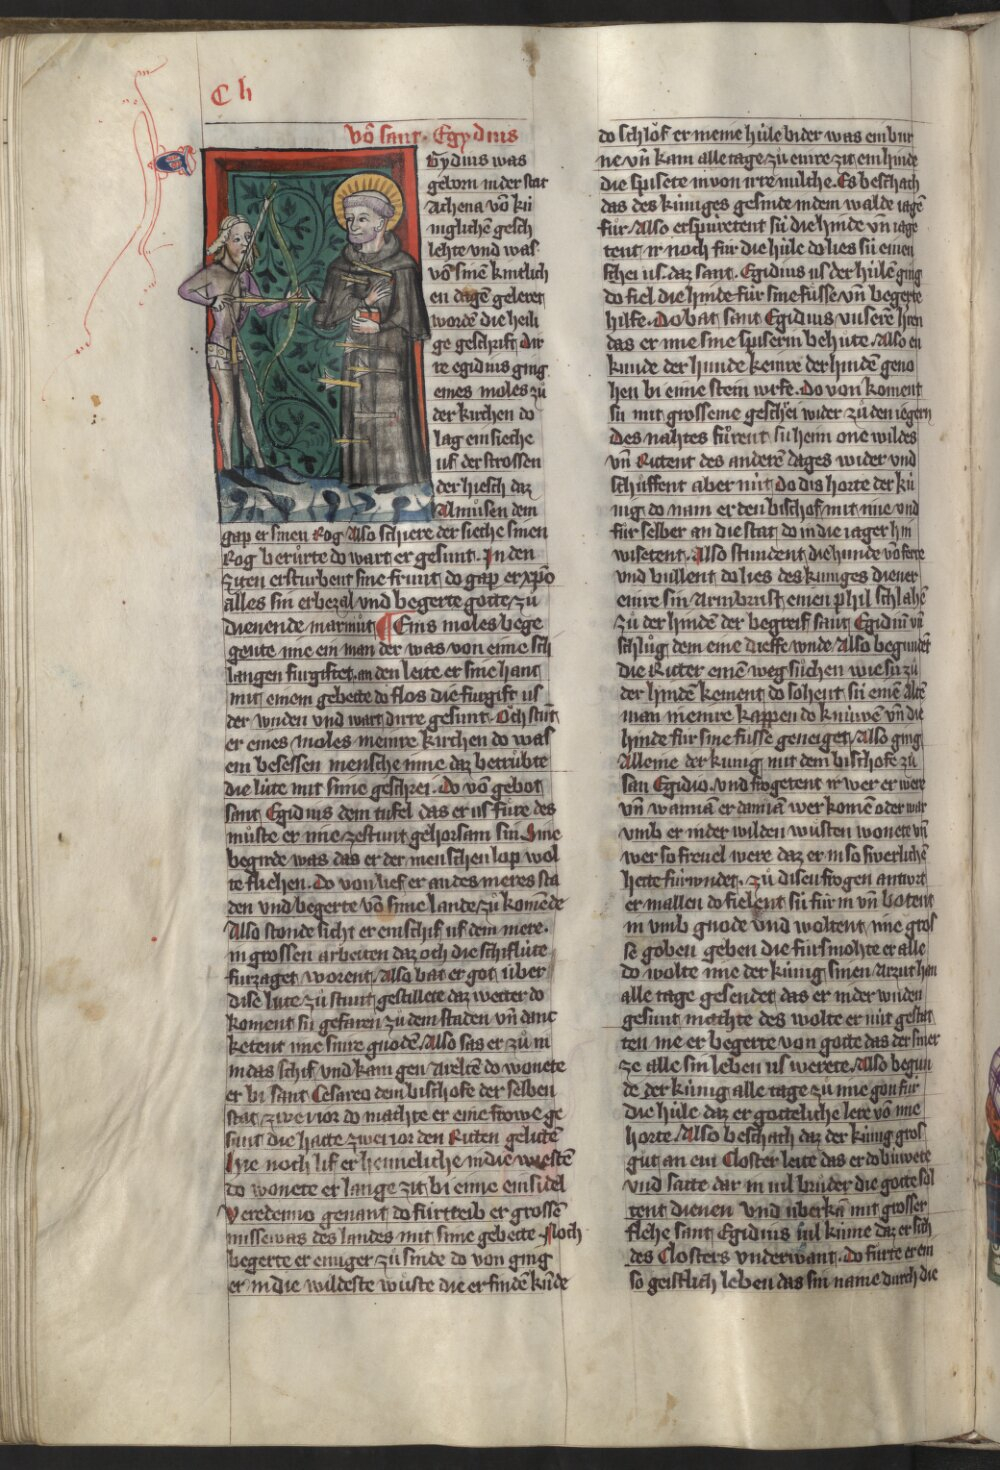 C h
vō sant. Egydius
Egydius was
geborn in der stat
Achena vō kü
niglichē gesch
lehte vnd was
vō sinē kintlich
en dagē geleret
wordē die heili
ge geschrift Dir
re egidius ging
eines moles zů
der kirchen do
lag ein sieche
uf der strossen
der hiesch daz
Almůsen dem
gap er sinen Rog Also schiere der sieche sinen
Rog berůrte do wart er gesunt. In den
ziten ersturbent sine frunt do gap er xp̄o
alles sin erbezal vnd begerte gotte zů
dienende Eins moles bege
gente ime ein man der was von eime sch
langen furgiftet an den leite er sine hant
mit einem gebette do flos die furgift us
der wnden vnd wart dirre gesunt. Och stůt
er eines moles in einre kirchen do was
ein besessen mensche inne daz betrůbte
die lüte mit sime geschrei. Do vō gebot
sant Egidius dem tufel das er us fůre des
můste er ime zestunt gehorsam sin Sine
begirde was das er der menschen lop wol
te fliehen. Do von lief er an des meres sta
den vnd begerte vō sime lande zů komēde
Also stonde sicht er ein schif uf dem mere.
in grossen arbeiten daz och die schiflüte
furzaget worent Also bat er got über
dise lute zů stunt gestillete daz wetter do
koment sü gefaren zů dem staden vn̄ danc
ketent ime sinre gnodē. Also sas er zů in
in das schif vnd kam gen Areltē do wonete
er bi sant Cesareo dem bischofe der selben
stat zwei ior do machte er eine frowe ge
sunt die hatte zwei ior den Riten gelittē
hie noch lif er heimeliche in die wiestē
do wonete er lange zit bi eime einsidel
Veredemio genant do fürtreib er grossē
missewas des landes mit sime gebette. Noch
begerte er einiger zů sinde do von ging
er in die wildeste wůste die er findē kūde
do schlof er in eine hüle bi der was ein bur
ne vn̄ kam alle tage zů einre zit ein hinde
die spisete in von irre milche. Es beschach
das des küniges gesinde in dem walde iagē
fůr Also erspüretent sü die hinde vn̄ iage
tent ir noch für die hüle do lies sü einen
schei us. daz sant. Egidius us der hülē ging
do fiel die hinde für sine füsse vn̄ begerte
hilfe. Do bat sant Egidius vnserē hren
das er ime sine spiserin behůte. Also en
kunde der hunde keinre der hindē geno
hen bi eime stein wrfe. Do von koment
sü mit grosseme geschrei wider zů den iegern
Des nahtes fůrent sü heim one wildes
vn̄ Rittent des anderē dages wider vnd
schůffent aber nüt Do dis horte der kü
nig do nam er den bischof mit ime vnd
für selber an die stat do in die iager hin
wisetent. Also stundent die hunde vō ferre
vnd bullent do lies des kuniges diener
einre sin Armbrust einen phil schlahē
zů der hindē der begreif sant Egidiū vn̄
schlůg dem eine dieffe wnde Also begundēt
die Ritter einē weg sůchen wie sü zů
der hindē kement do sohent sü einē Altē
man in einre kappen do knüwē vn̄ die
hinde für sine füsse geneiget Also ging
Alleine der kunig mit dem bischofe zů
san Egidio. vnd frogetent ir wer er were
vn̄ wannā er danā wer komē oder war
vmb er in der wilden wůsten wonete vn̄
wer so freuel were daz er in so swerlichē
hette fürwndet. zů disen frogen antwrt
er in allen do fielent sü für in vn̄ botent
in vmb gnode vnd woltent ime gros
se goben geben die fürsmohte er alle
do wolte ime der künig sinen Arzat han
alle tage gesendet das er in der wnden
gesunt mechte des wolte er nüt gestat
ten me er begerte von gotte das der smer
ze alle sin leben us werete. Also begun
de der künig alle tage zů ime gon für
die hüle daz er gotteliche lere vō ime
horte Also beschach daz der künig gros
gůt an ein Closter leite das er do buwete
vnd satte dar in uil brůder die gotte sol
tent dienen vnd überkā mit grosser
flehe sant Egidius vil kume daz er sich
des Closters vnderwant. Do fůrte er ein
so geistlich leben das sin name durch die